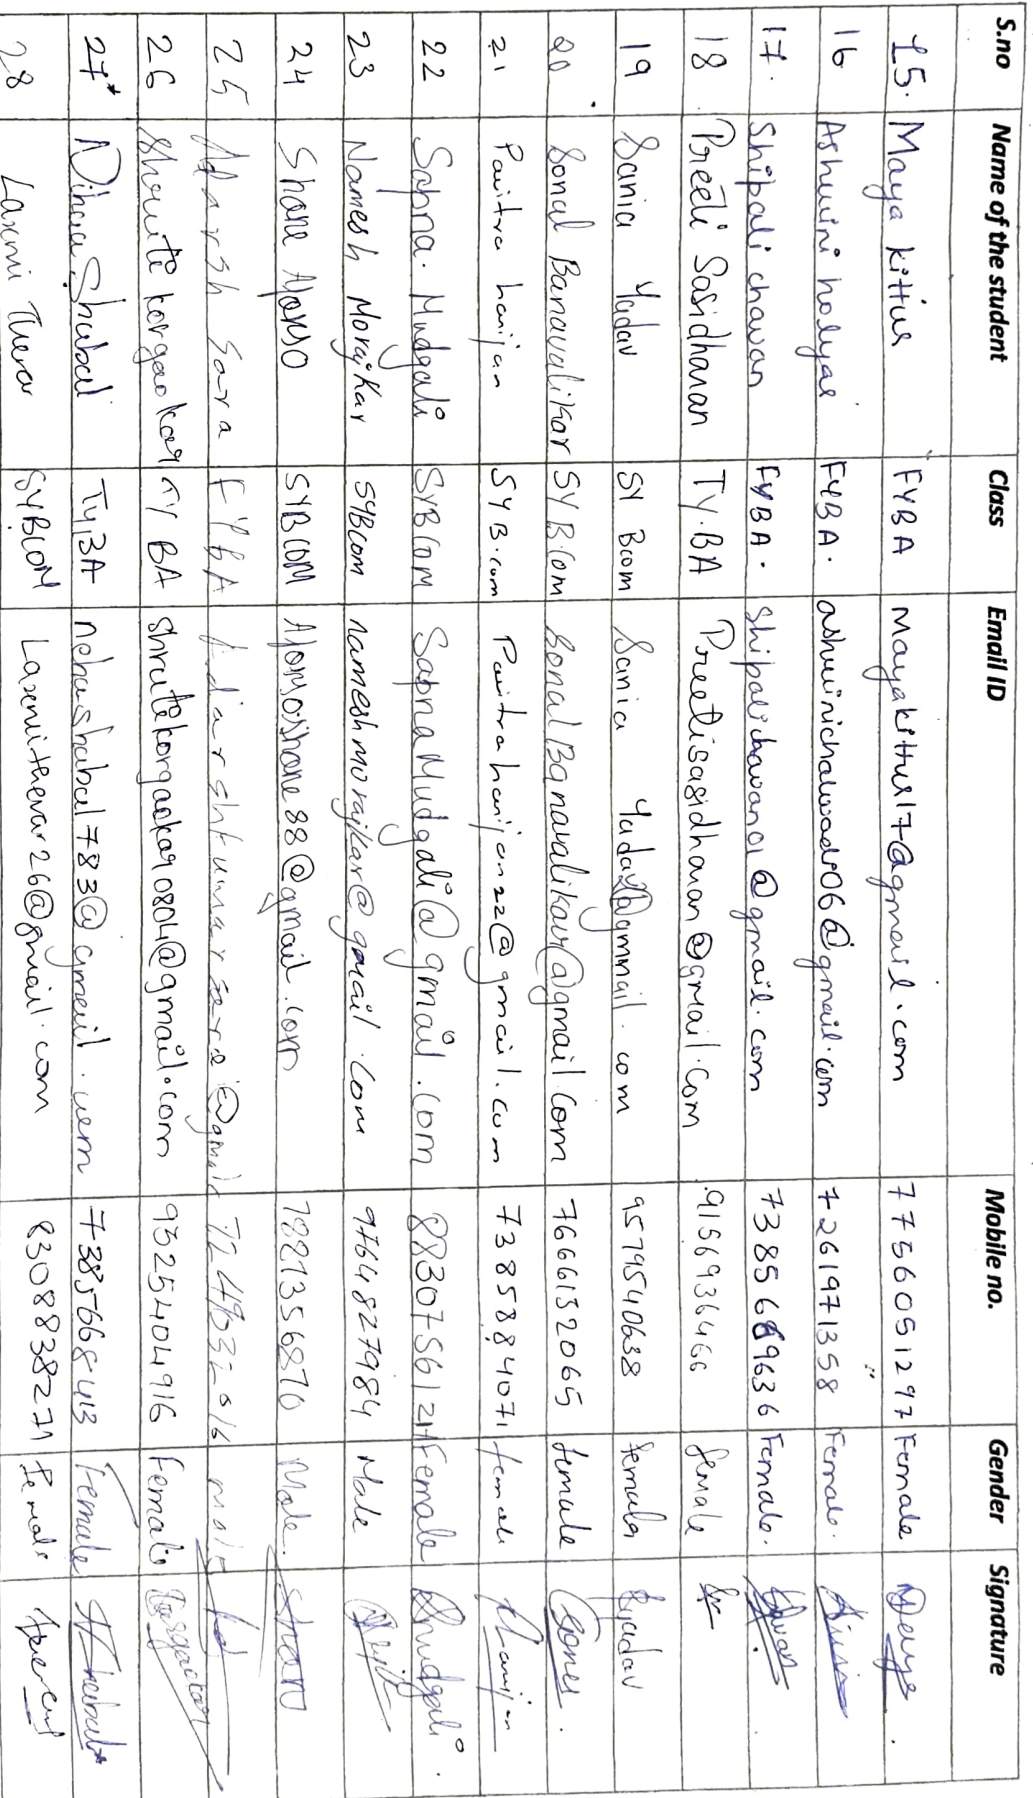 S.no Name of the student Class Email ID Mobile no. Gender Signature
15. Maya kittur FYBA mayakittur17@gmail.com 7756051297 Female
16 Ashwini holyae FYBA. 7261971358 Female.
17. Shipali chavan FYBA. shipalichavan01@gmail.com Female.
18. Preeti Sasidharan TY.BA Preetisasidharan@gmail.com 9156936466 female
19 Sania Yadav SY Bcom Sania 9579540638 female Syadav
20 Sonal Banavalikar SY B.com SonalBanavalikar@gmail.com 7666132065 female
21 Pavitra harijan SY B.com Pavitraharijan22@gmail.com 7385884071 female Harijan
22 Sapna. Mudgali SYBCom SapnaMudgali@gmail.com Female Smudgali.
23 Namesh Morajkar SYBcom nameshmorajkar@gmail.com 9764827984 Male
24 Shane Afonso SYBCOM Afonsoshane88@gmail.com Male.
25 Adarsh Sara FYBA male
26 Shruti korgaokar TY BA 9325404916 Female Korgaokar
27 Neha Shabal TyBA nehashabal783@gmail.com 7385668413 Female Shabal
28 Laxmi Thevar SYBCOM Laxmithevar26@gmail.com 8308838271 Female